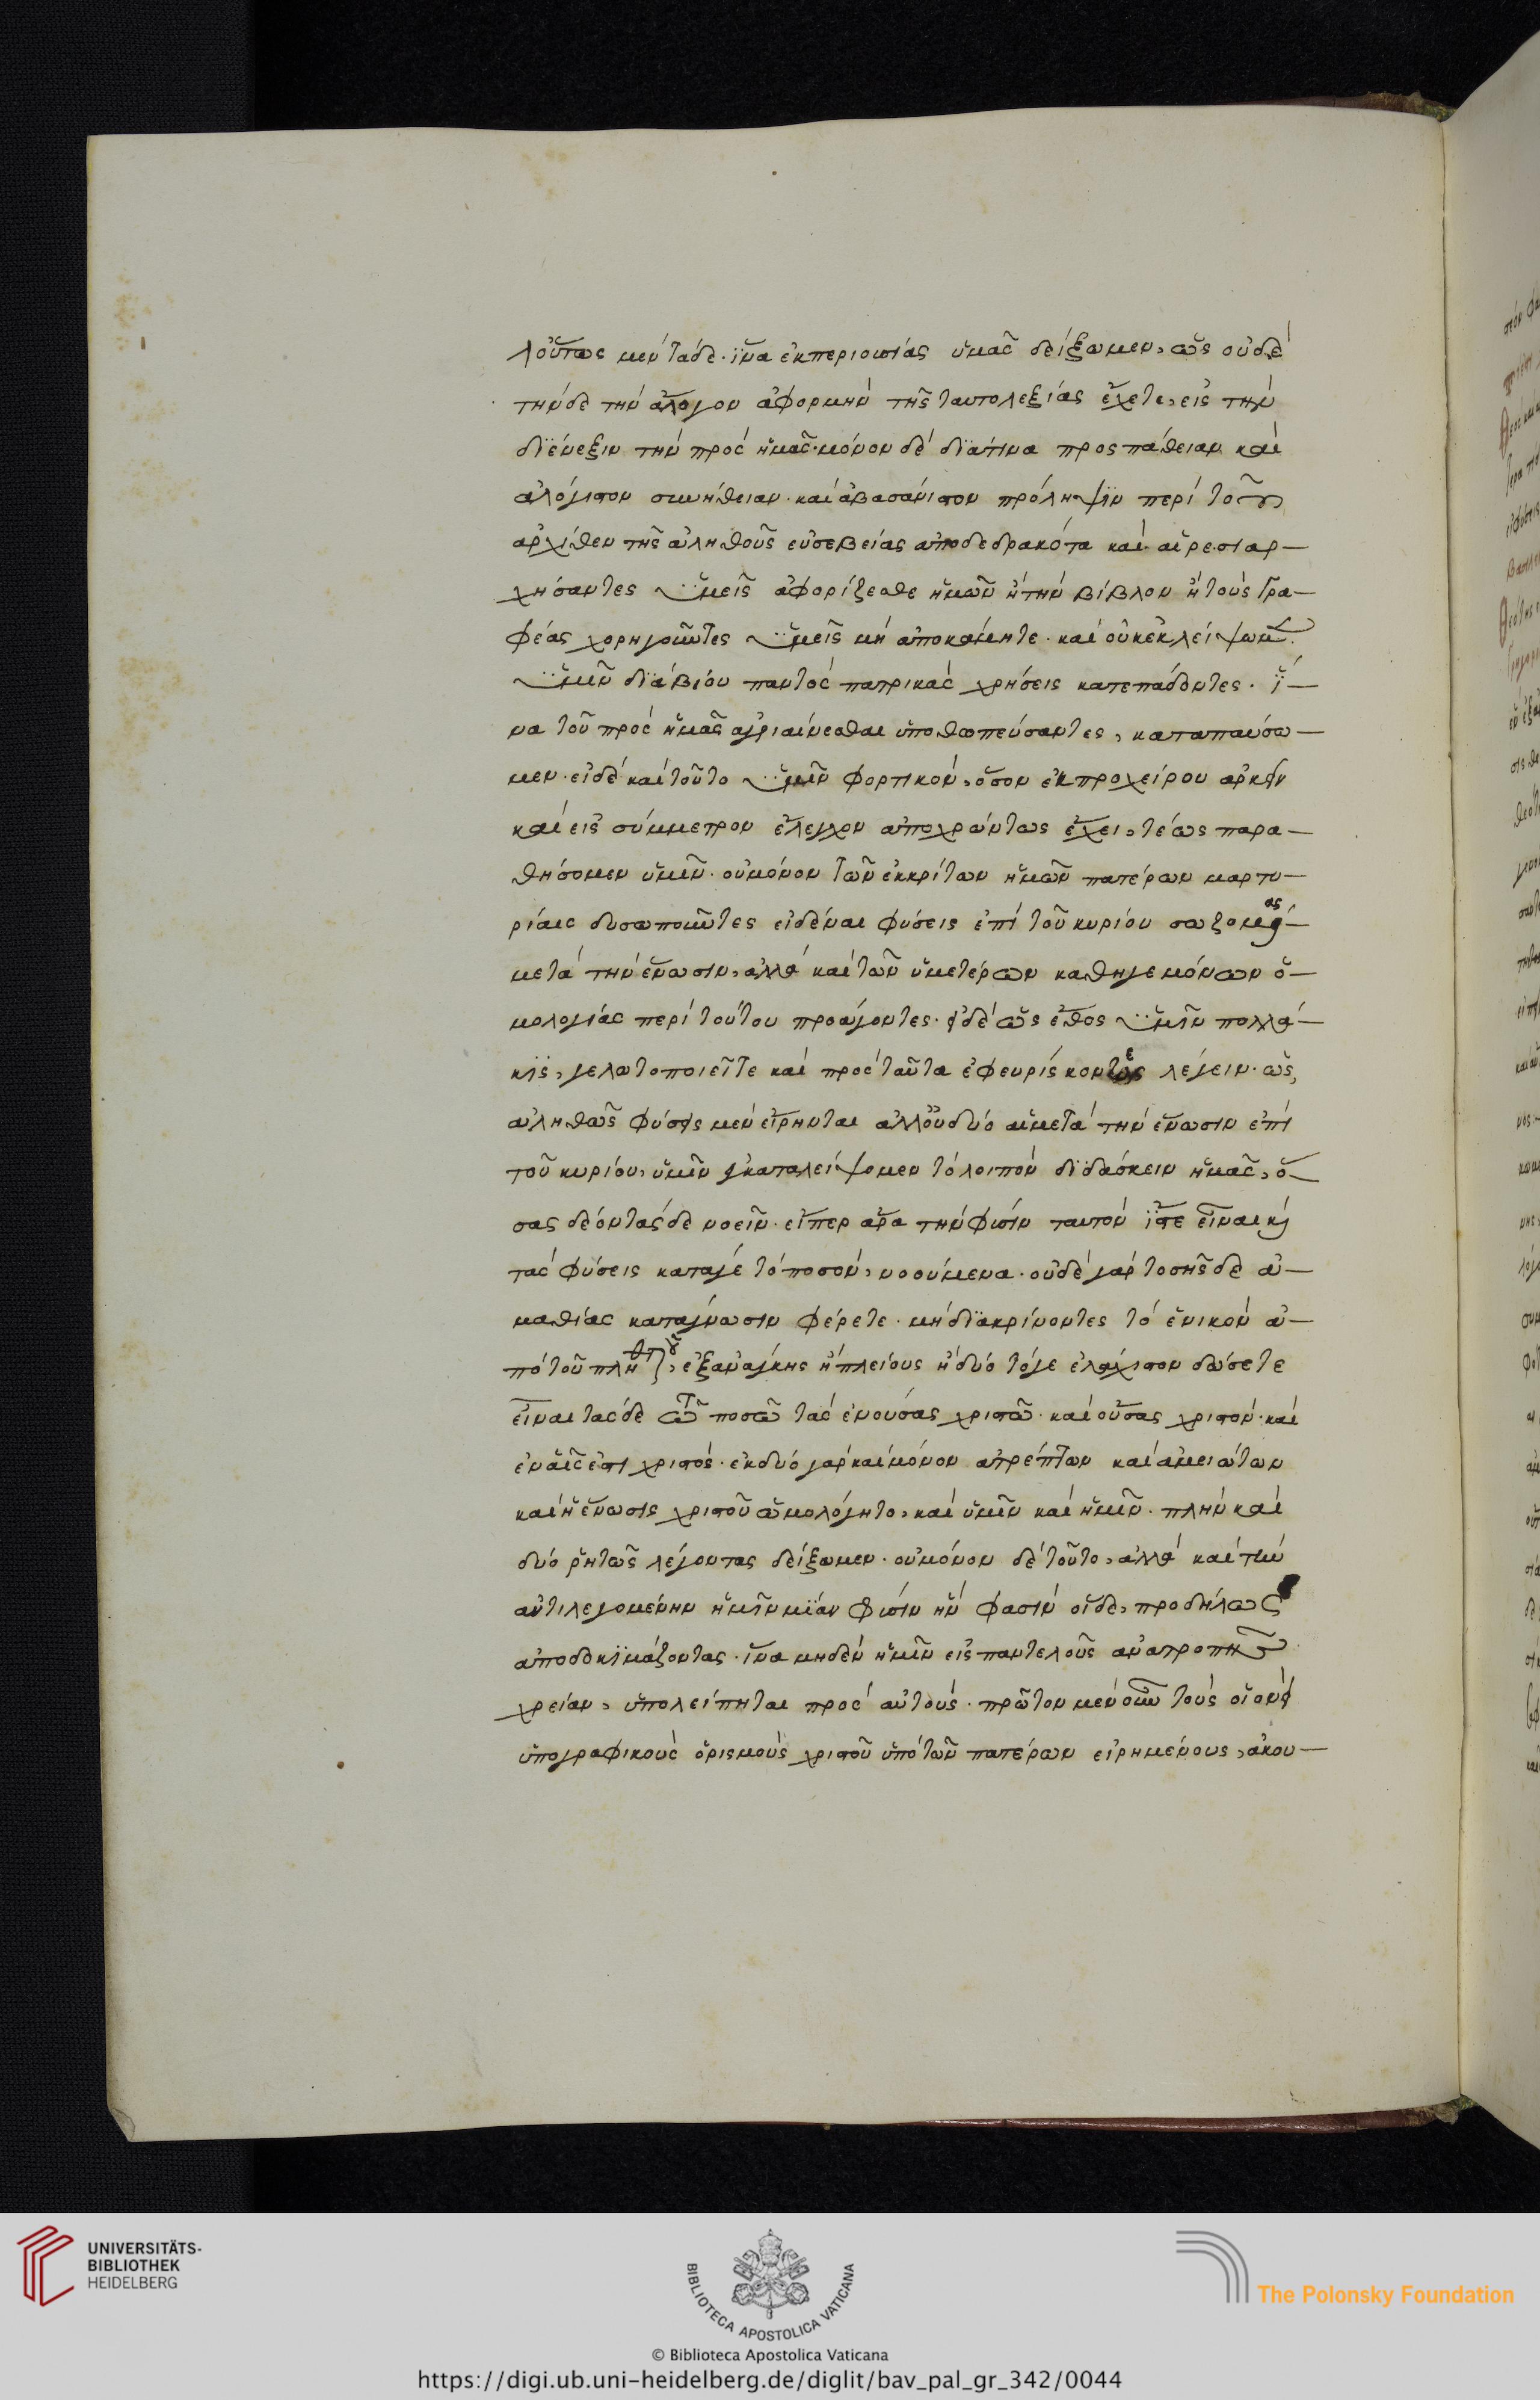 λούτως μὲν τάδε· ἵνα ἐκπεριουσίας ὑμᾶς δείξωμεν, ὡς οὐδὲ
τὴνδε τὴν ἄλογον ἀφορμὴν τῆς ταυτολεξίας ἔχετε, εἰς τὴν
διένεξιν τὴν πρὸς ἡμᾶς· μόνον δὲ διάτινα προςπάθειαν καὶ
ἀλόγιστον συνήθειαν· καὶ ἀβασάνιστον πρόληψιν περὶ τοὺς
ἀρχῆθεν τῆς ἀληθοῦς εὐσεβείας ἀποδεδρακότα καὶ αἱρεσιαρ—
χήσαντες ὑμεῖς ἀφορίζεσθε ἡμῶν ἢ τὴν βίβλον ἢ τοὺς γρα—
φέας χορηγοῦντες ὑμεῖς μὴ ἀποκάμητε· καὶ οὐκ ἐκλείψωμεν
ὑμῖν διὰ βίου παντὸς πατρικὰς χρήσεις κατεπάδοντες· ἵ—
να τοῦ πρὸς ἡμᾶς ἀγριαίνεσθαι ὑποθωπεύσαντες, καταπαύσω—
μεν· εἰ δὲ καὶ τοῦτο ὑμῖν φορτικὸν, ὅσον ἐκπροχείρου ἀρκεῖν
καὶ εἰς σύμμετρον ἔλεγχον ἀποχρώντως ἔχει, τέως παρα—
θήσομεν ὑμῖν· οὐ μόνον τῶν ἐκκρίτων ἡμῶν πατέρων μαρτυ—
ρίαις δυσωποῦντες εἰδέναι φύσεις ἐπὶ τοῦ κυρίου σωζομένας
μετὰ τὴν ἕνωσιν, ἀλλὰ καὶ τῶν ὑμετέρων καθηγεμόνων ὁ—
μολογίας περὶ τούτου προάγοντες· εἰ δὲ ὡς ἔθος ὑμῖν πολλά—
κις, γελωτοποιεῖτε καὶ πρὸς ταῦτα ἐφευρίσκοντες λέγειν· ὡς,
ἀληθῶς φύσις μὲν εἴρηνται ἀλλ' οὐ δύο αἱ μετὰ τὴν ἕνωσιν ἐπὶ
τοῦ κυρίου, ὑμῖν καταλείψομεν τὸ λοιπὸν διδάσκειν ἡμᾶς, ὅ—
σας δεόντας δε νοεῖν· εἴπερ ἄρα τὴν φύσιν ταυτὸν ἴστε εἶναι κὶ
τὰς φύσεις καταγὲ τὸ ποσὸν, νοούμενα· οὐδὲ γὰρ τοσῆς δε ἀ—
μαθίας κατάγνωσιν φέρετε· μὴ διακρίνοντες τὸ ἑνικὸν ἀ—
πὸ τοῦ πληθυντικοῦ, ἐξανάγκης ἢ πλείους ἢ δύο τόγε ἐλάχιστον δώσετε
εἶναι τάςδε τῶ ποσῶ τὰς ἑνούσας χριστῶ· καὶ οὔσας χριστὸν· καὶ
ἐν αἷς ἐστι χριστὸς· ἐκ δύο γὰρ καὶ μόνον ἀτρέπτων καὶ ἀμειώτων
καὶ ἡ ἕνωσις χριστοῦ ὡμολόγητο, καὶ ὑμῖν καὶ ἡμῖν· πλὴν καὶ
δύο ῥητῶς λέγοντας δείξωμεν· οὐ μόνον δὲ τοῦτο, ἀλλὰ καὶ τὴν
ἀντιλεγομένην ἡμῖν μίαν φύσιν ἣν φασὶν οἵδε, προδήλως
ἀποδοκιμάζοντας· ἵνα μηδὲν ἡμῖν εἰς παντελοῦς ἀνατροπῆς
χρείαν, ὑπολείπηται πρὸς αὐτοὺς· πρῶτον μὲν οὖν τοὺς οἱονεὶ
ὑπογραφικοὺς ὁρισμοὺς χριστοῦ ὑπὸ τῶν πατέρων εἰρημένους, ἀκου—
UNIVERSITÄTS-
BIBLIOTHEK
HEIDELBERG
BIBLIOTECA APOSTOLICA VATICANA
The Polonsky Foundation
© Biblioteca Apostolica Vaticana
https://digi.ub.uni-heidelberg.de/diglit/bav_pal_gr_342/0044